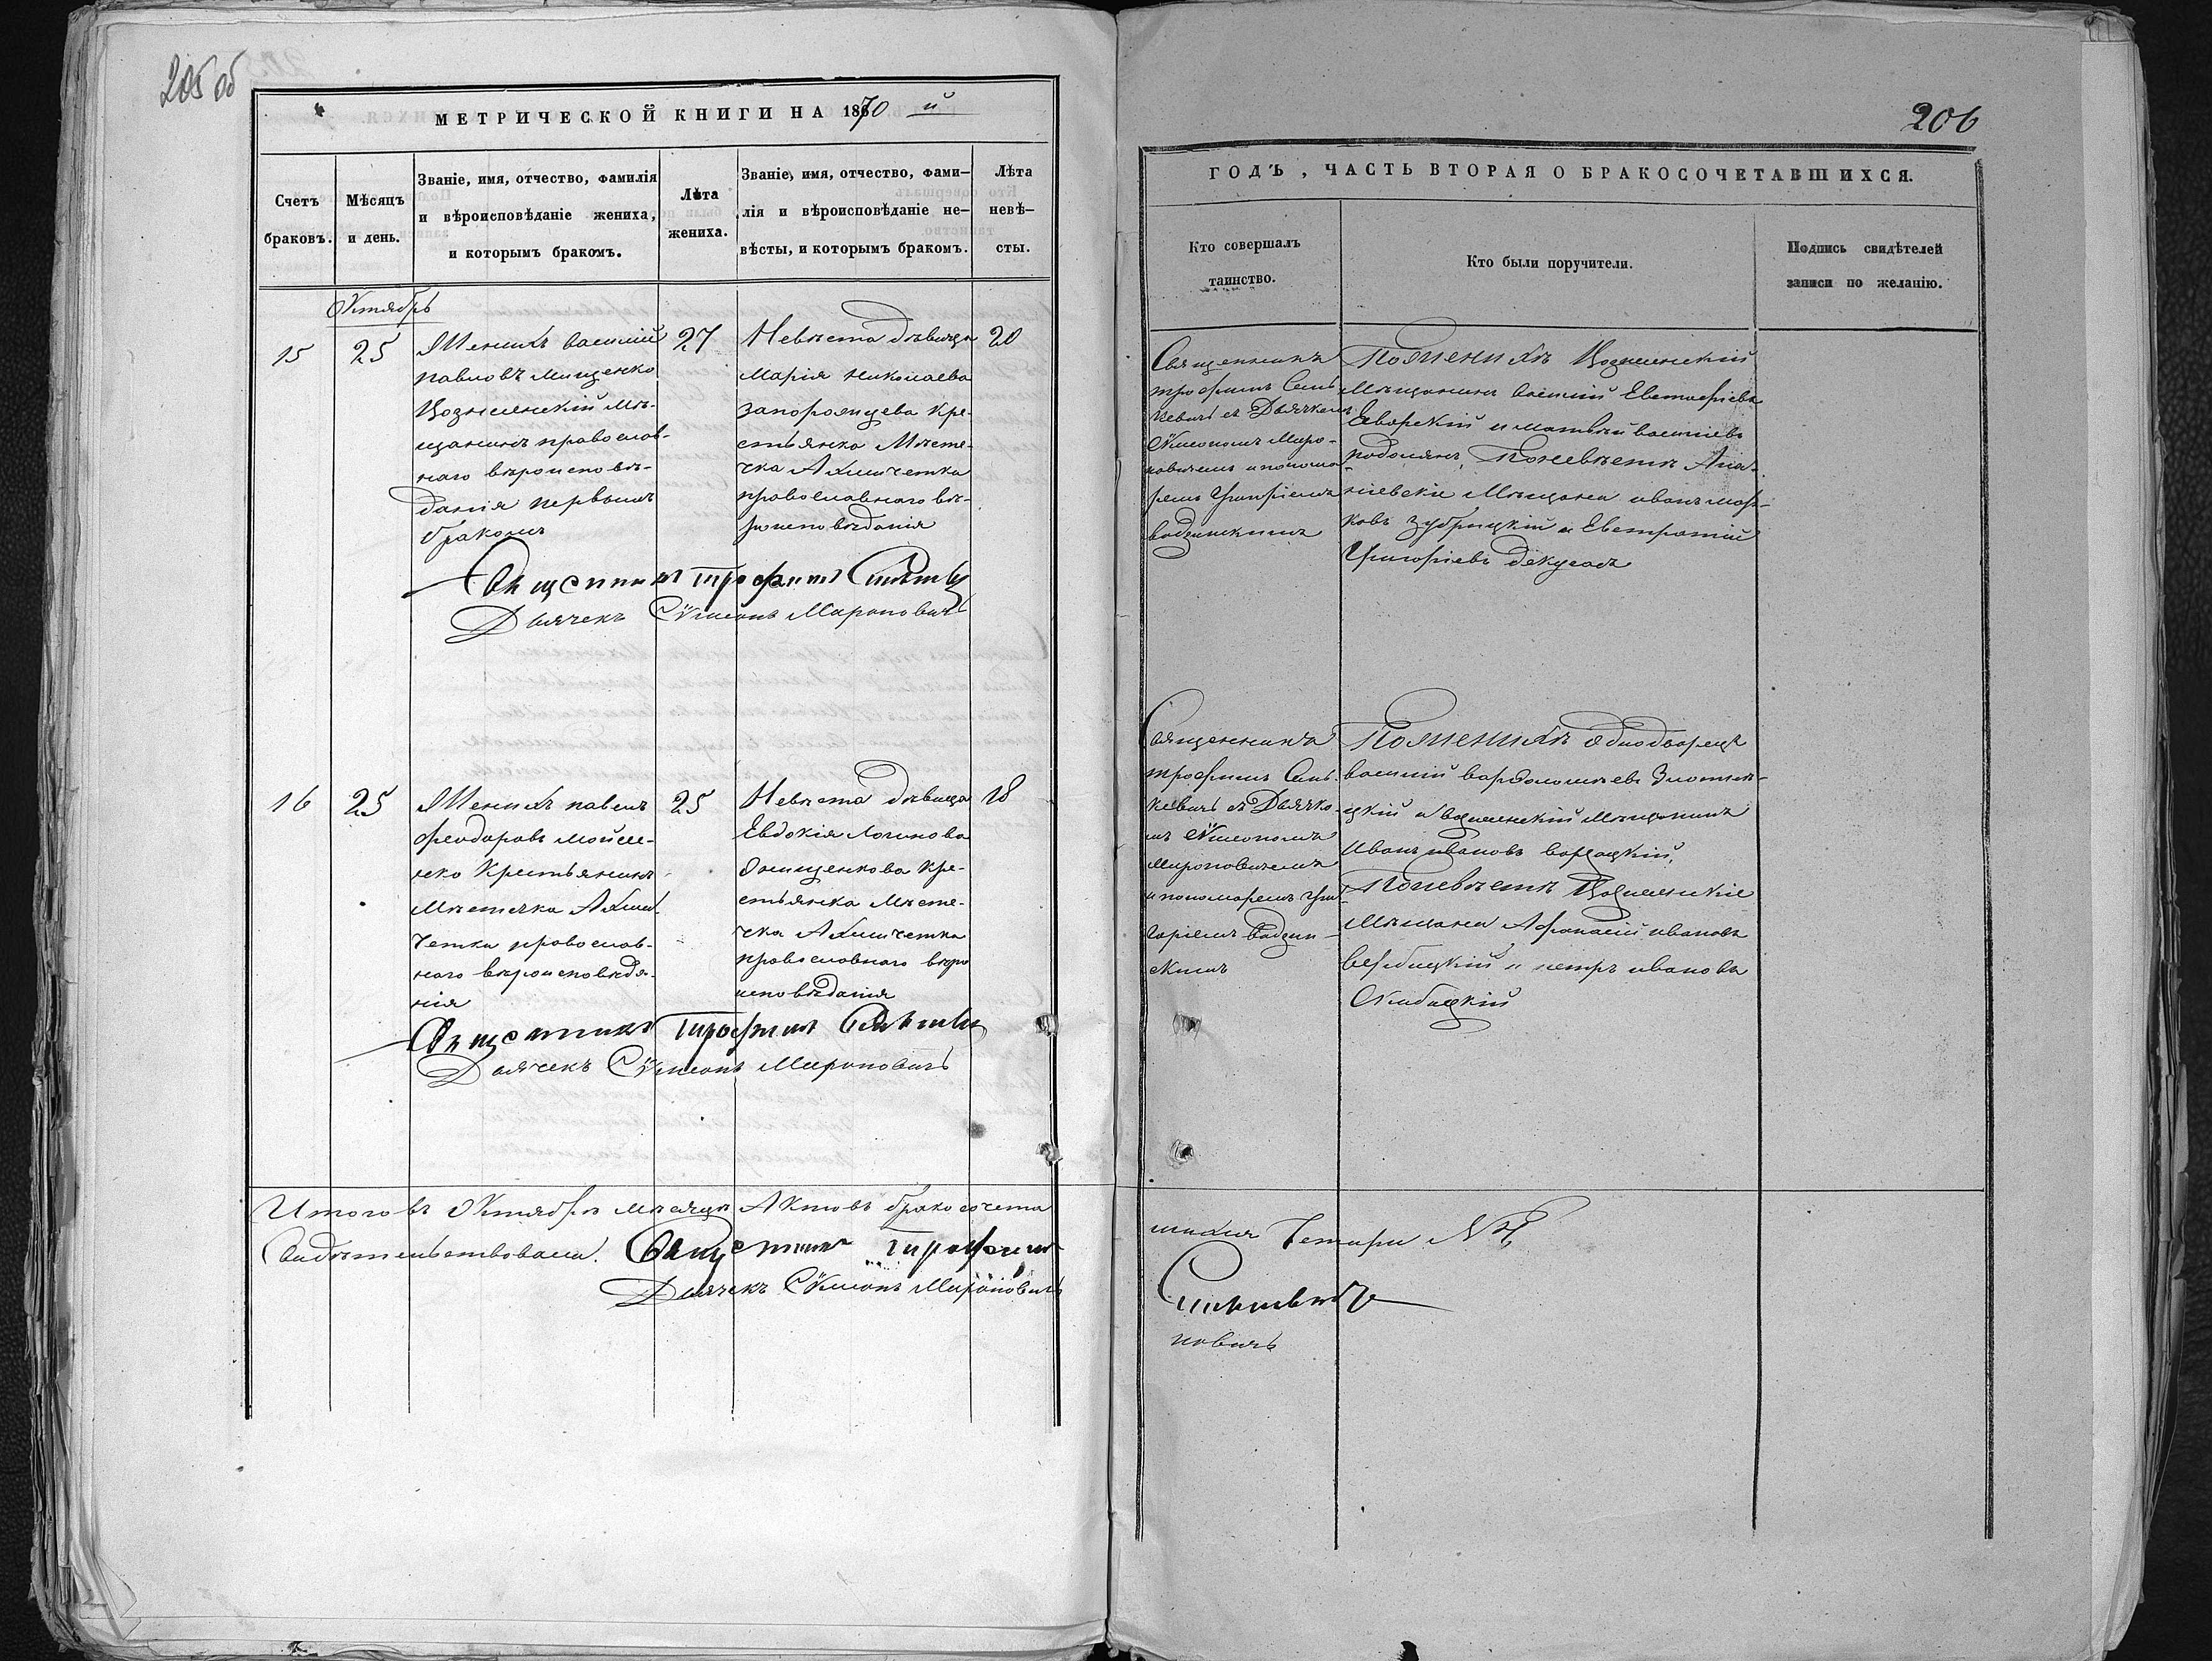 205 об
МЕТРИЧЕСКОЙ КНИГИ НА 1870 й
Счетъ браковъ.
Мѣсяцъ и день.
Званіе, имя, отчество, фамилія
и вѣроисповѣданіе жениха,
и которымъ бракомъ.
Лѣта
жениха.
Званіе, имя, отчество, фами-
лія и вѣроисповѣданіе не-
вѣсты, и которымъ бракомъ.
Лѣта
невѣ-
сты.
Октябрь
15
25
Женихъ василий
павловъ мищенко
Вознесенскій мѣ-
щанинъ православ-
наго вѣроисповѣ-
данія первымъ
бракомъ
27
Невѣста дѣвица
Марія николаева
запорожцева кре-
стьянка Мѣсте-
чка Ахмичетка
православнаго вѣ-
роисповѣданія
20
Священникъ Трофимъ
Дьячекъ Сѵмеонъ Мироновичъ
16
25
Женихъ павелъ
феодоровъ мойсе-
нко Крестьянинъ
Мѣстечка Ахми-
четки православ-
наго вѣроисповѣда-
нія
25
Невѣста дѣвица
Евдокія Логинова
Онищенкова Кре-
стьянка Мѣсте-
чка Ахмичетка
православнаго вѣро
исповѣданія
18
Священникъ Трофимъ
Дьячекъ Сѵмеонъ Мироновичъ
Итого въ Октябрѣ мѣсяцѣ Актовъ бракосочета
Свидѣтельствовали. Священникъ Трофимъ
Дьячекъ Сѵмеонъ Мироновичъ
206
ГОДЪ, ЧАСТЬ ВТОРАЯ О БРАКОСОЧЕТАВШИХСЯ.
Кто совершалъ
таинство.
Кто были поручители.
Подпись свидѣтелей
записи по желанію.
Священникъ
трофимъ
съ Дьячкомъ
Сѵмеономъ Миро-
новичемъ и понома-
ремъ Григоріемъ
По Женихѣ Вознесенскій
Мѣщанинъ василий Евстафіевъ
и матвѣй василіевъ
подолянъ, По невѣстѣ Ана-
ніевскіе Мѣщане иванъ мар-
ковъ зубрицкій и Евстратій
Григоріевъ декусаръ
Священникъ
трофимъ
съ Дьячко-
мъ Сѵмеономъ
Мироновичемъ
и пономаремъ Гри
горіемъ
По Женихѣ Однодворецъ
василий варфоломѣевъ
цкій и вознесенскій мѣщанинъ
Иванъ ивановъ
По невѣстѣ Вознесенскіе
Мѣщане Афанасій ивановъ
вербицкій и петръ ивановъ
Скибицкій
шихся Четыри №4
новичъ